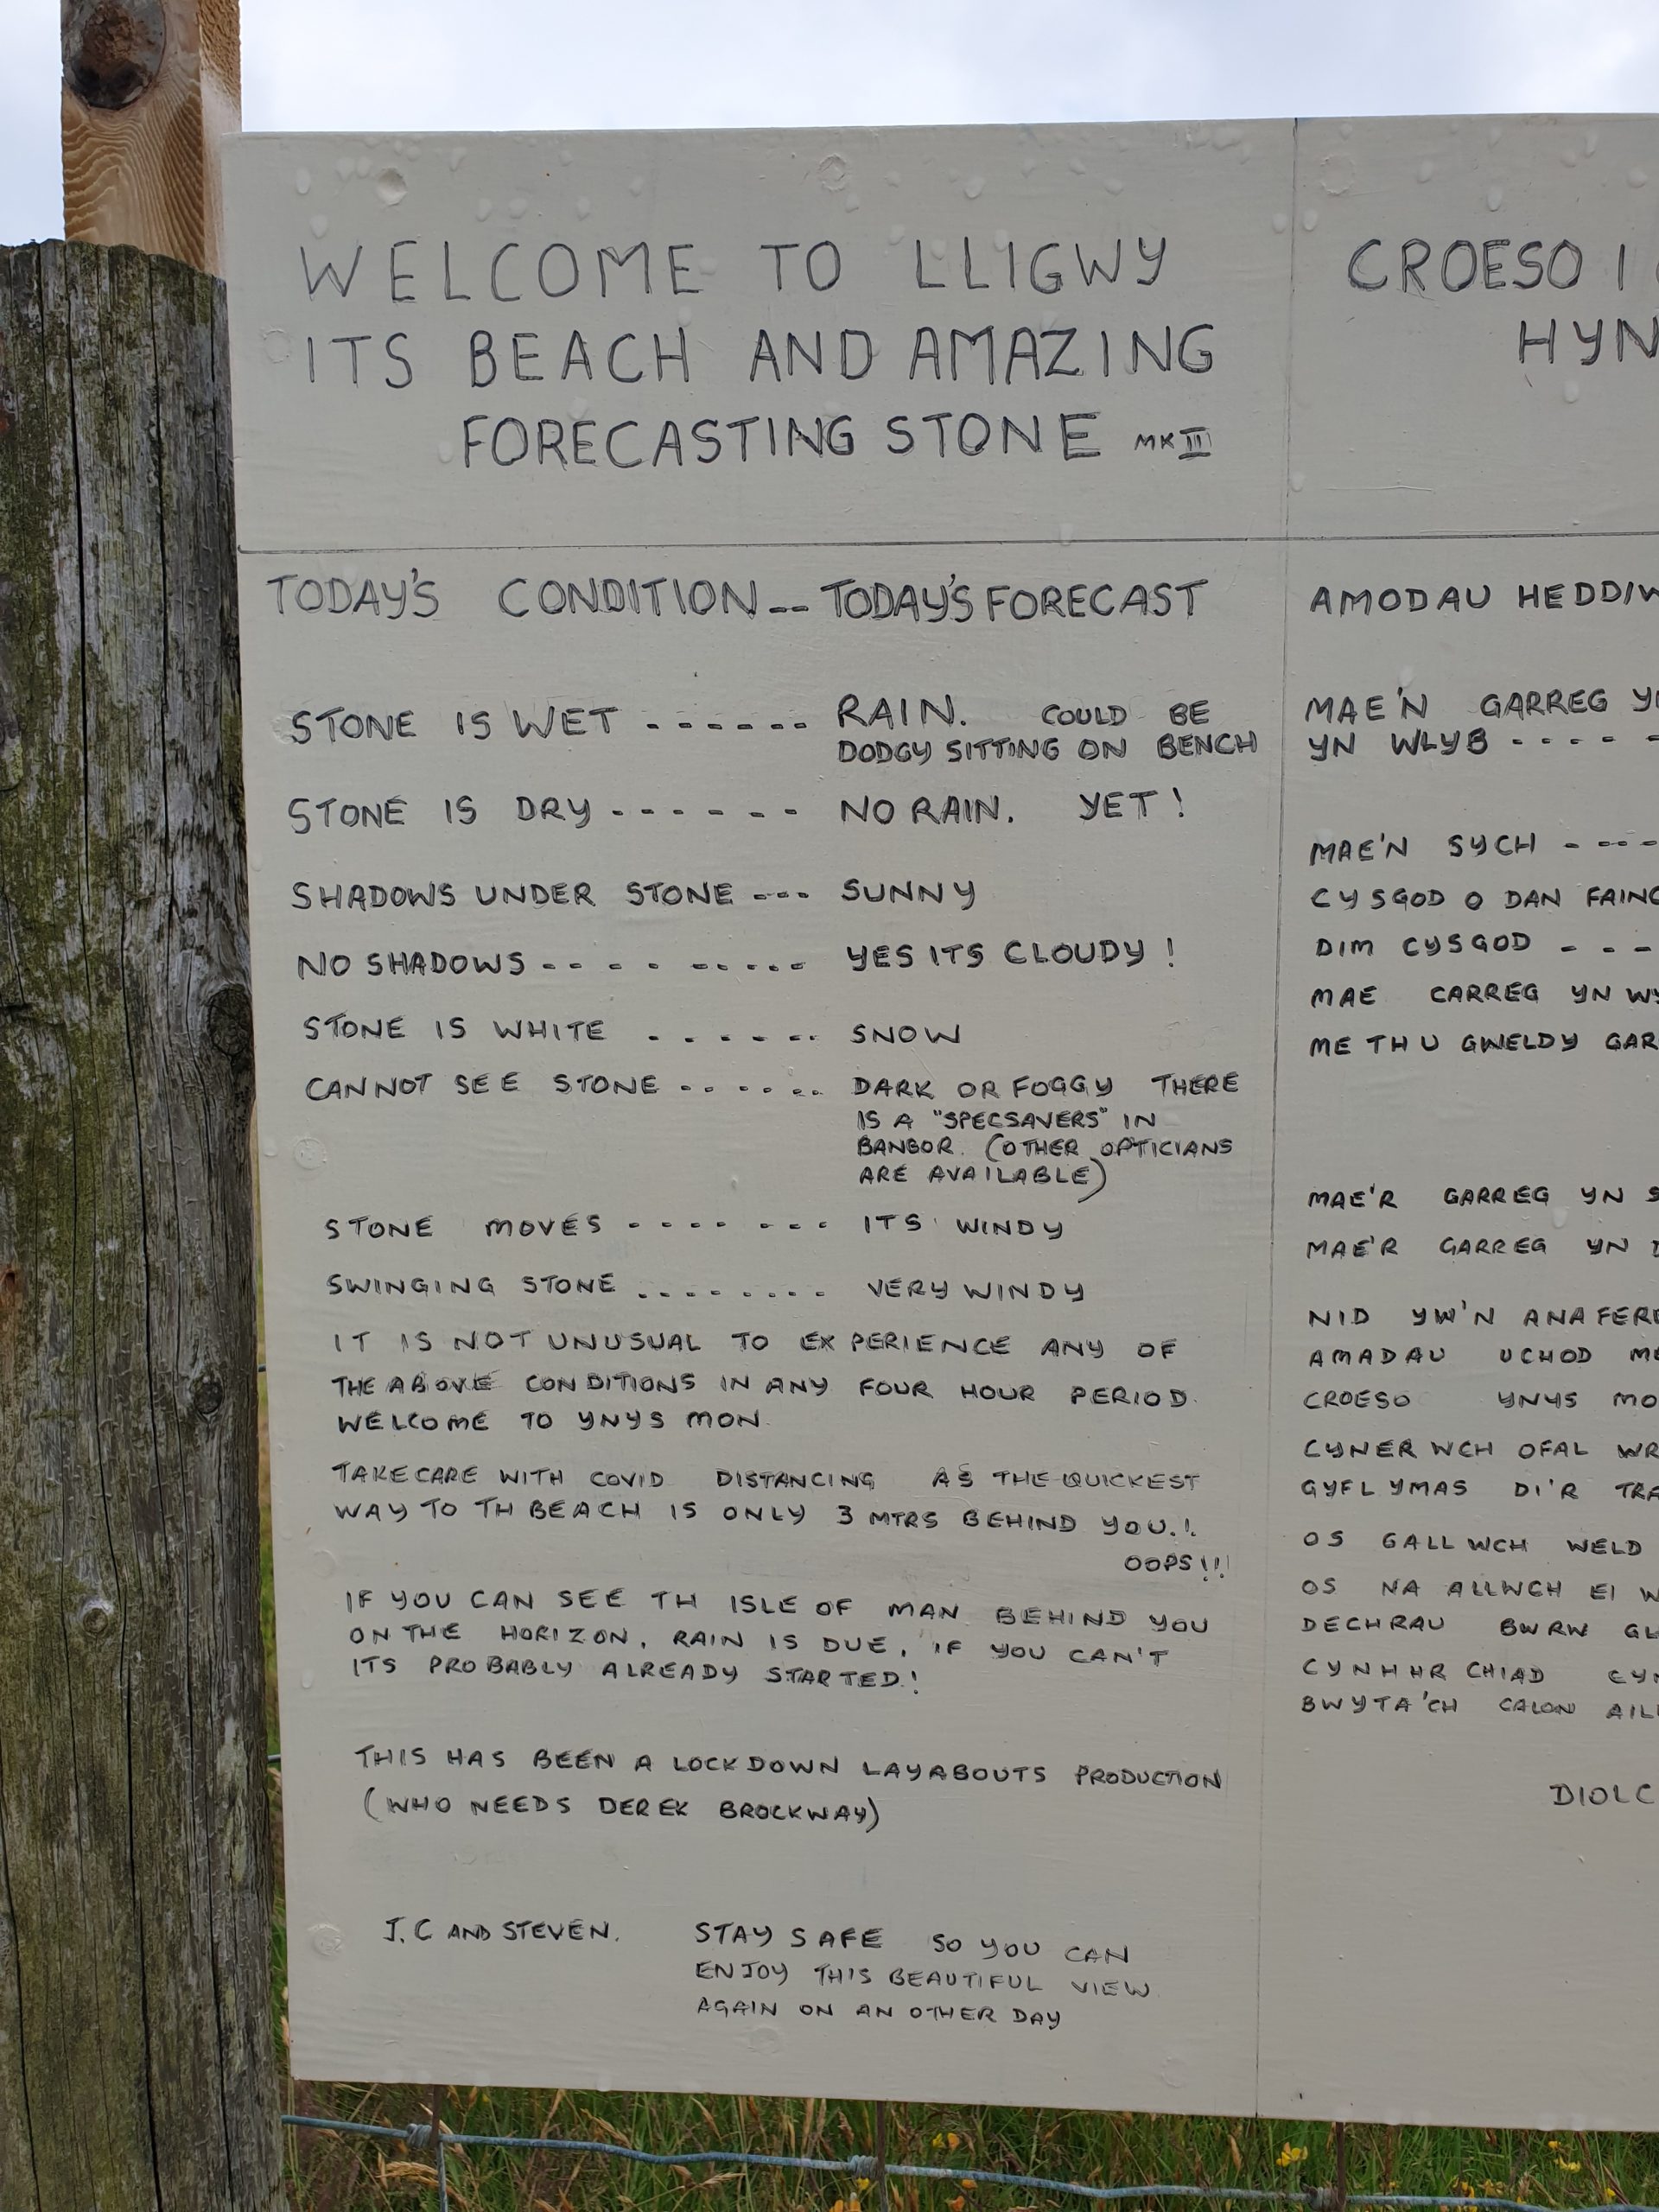 WELCOME TO LLIGWY
ITS BEACH AND AMAZING
FORECASTING STONE MK III
TODAY'S CONDITION -- TODAY'S FORECAST
STONE IS WET ------ RAIN. COULD BE
DODGY SITTING ON BENCH
STONE IS DRY ------ NO RAIN. YET!
SHADOWS UNDER STONE --- SUNNY
NO SHADOWS --------- YES ITS CLOUDY!
STONE IS WHITE ------ SNOW
CANNOT SEE STONE ------ DARK OR FOGGY THERE
IS A "SPECSAVERS" IN
BANGOR. (OTHER OPTICIANS
ARE AVAILABLE)
STONE MOVES ------- ITS WINDY
SWINGING STONE -------- VERY WINDY
IT IS NOT UNUSUAL TO EXPERIENCE ANY OF
THE ABOVE CONDITIONS IN ANY FOUR HOUR PERIOD.
WELCOME TO YNYS MON.
TAKE CARE WITH COVID DISTANCING AS THE QUICKEST
WAY TO TH BEACH IS ONLY 3 MTRS BEHIND YOU.!
OOPS!!!
IF YOU CAN SEE TH ISLE OF MAN BEHIND YOU
ON THE HORIZON, RAIN IS DUE, IF YOU CAN'T
ITS PROBABLY ALREADY STARTED!
THIS HAS BEEN A LOCKDOWN LAYABOUTS PRODUCTION
(WHO NEEDS DEREK BROCKWAY)
J.C AND STEVEN.
STAY SAFE SO YOU CAN
ENJOY THIS BEAUTIFUL VIEW
AGAIN ON AN OTHER DAY
CROESO I
HYN
AMODAU HEDDIW
MAE'N GARREG
YN WLYB ----
MAE'N SYCH ----
CYSGOD O DAN
DIM CYSGOD ---
MAE CARREG YN
METHU GWELDY
MAE'R GARREG YN
MAE'R GARREG YN
NID YW'N
AMADAU UCHOD
CROESO YNYS
CYNERWCH OFAL
GYFLYMAS DI'R
OS GALLWCH WELD
OS NA ALLWCH EI
DECHRAU BWRW
CYNHHRCHIAD
BWYTA'CH CALON